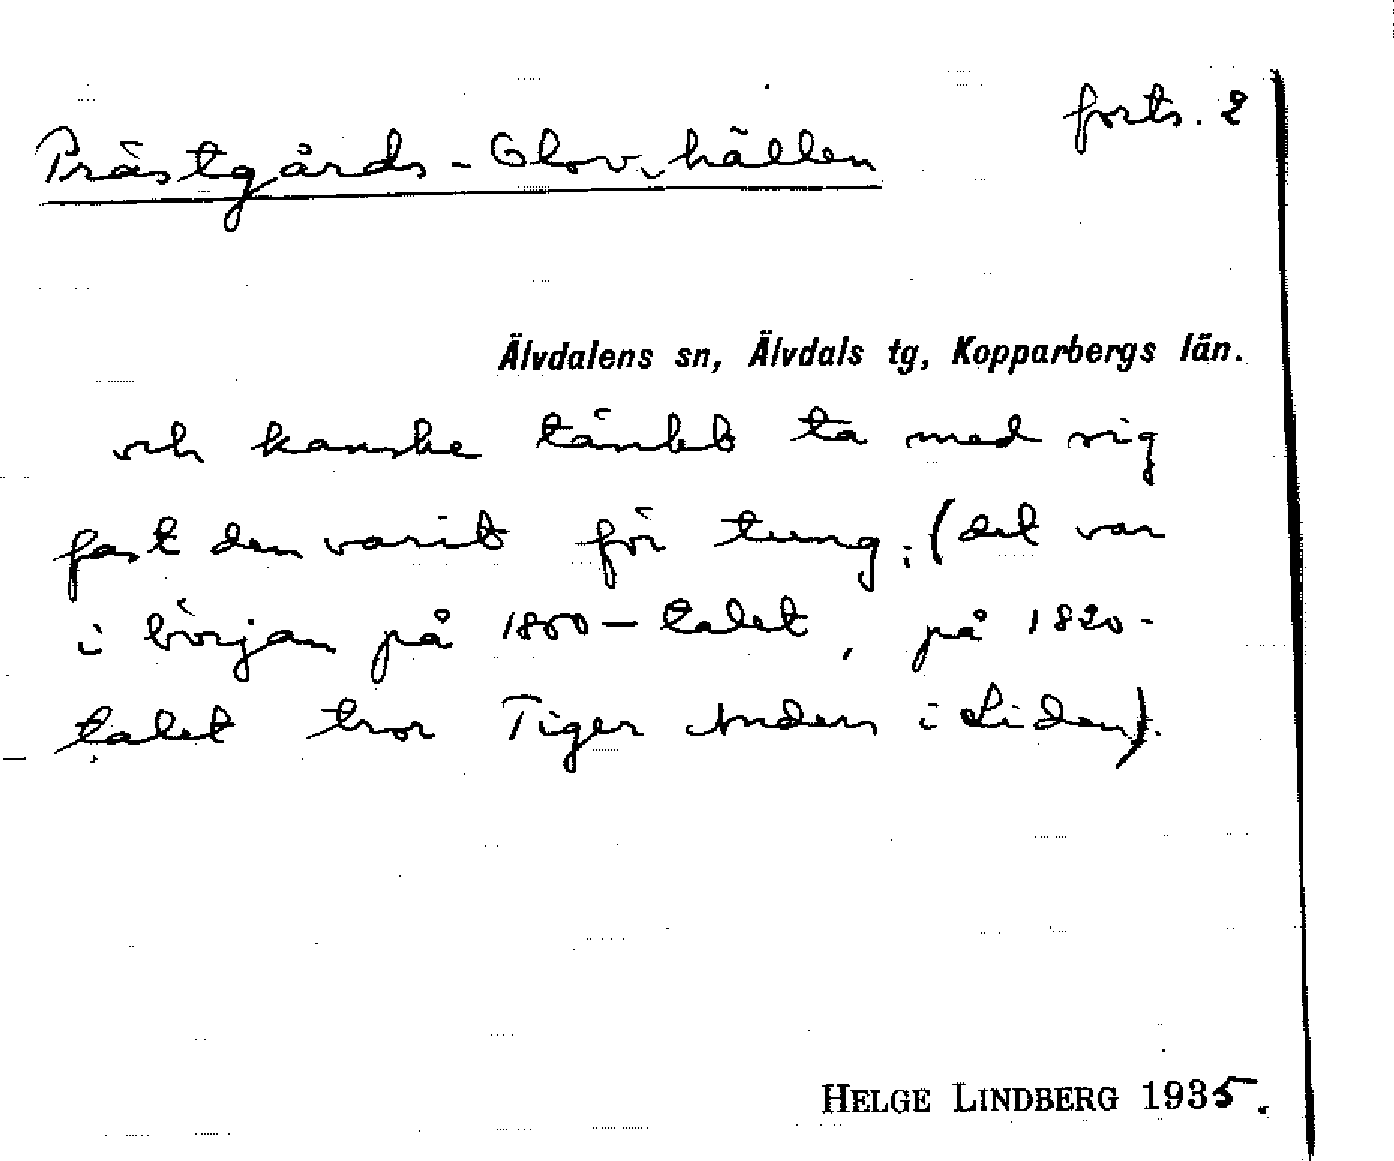 forts. 2
Prästgårds-Olov-hällen
Älvdalens sn, Älvdals tg, Kopparbergs län.
och kanske tänkt ta med sig
fast den varit för tung; (det var
i början på 1800-talet, på 1820-
talet tror Tiger Anders i Liden).
HELGE LINDBERG 1935.